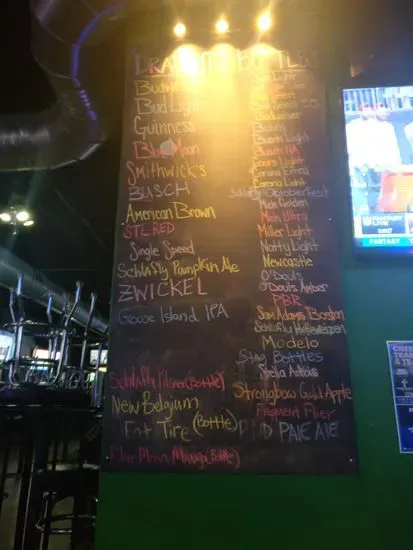 DRAFT
Budweiser
Bud Light
Guinness
Blue Moon
Smithwick's
BUSCH
American Brown
STL RED
Single Speed
Schlafly Pumpkin Ale
ZWICKEL
Goose Island IPA
Schlafly Pilsner (Bottle)
New Belgium
Fat Tire (Bottle)
Blue Moon Mango (Bottle)
BOTTLES
Bud Light
Bud Select 55
Budweiser
Busch
Busch Light
Busch NA
Coors Light
Corona Extra
Corona Light
Schlafly Oktoberfest
Mich Golden
Mich Ultra
Miller Light
Natty Light
Newcastle
O'Douls
O'Douls Amber
PBR
Sam Adams Boston
Schlafly Hefeweizen
Modelo
Stag Bottles
Stella Artois
Strongbow Gold Apple
Frequent Flier
PALE ALE
FANTASY
LIVE
FANTASY